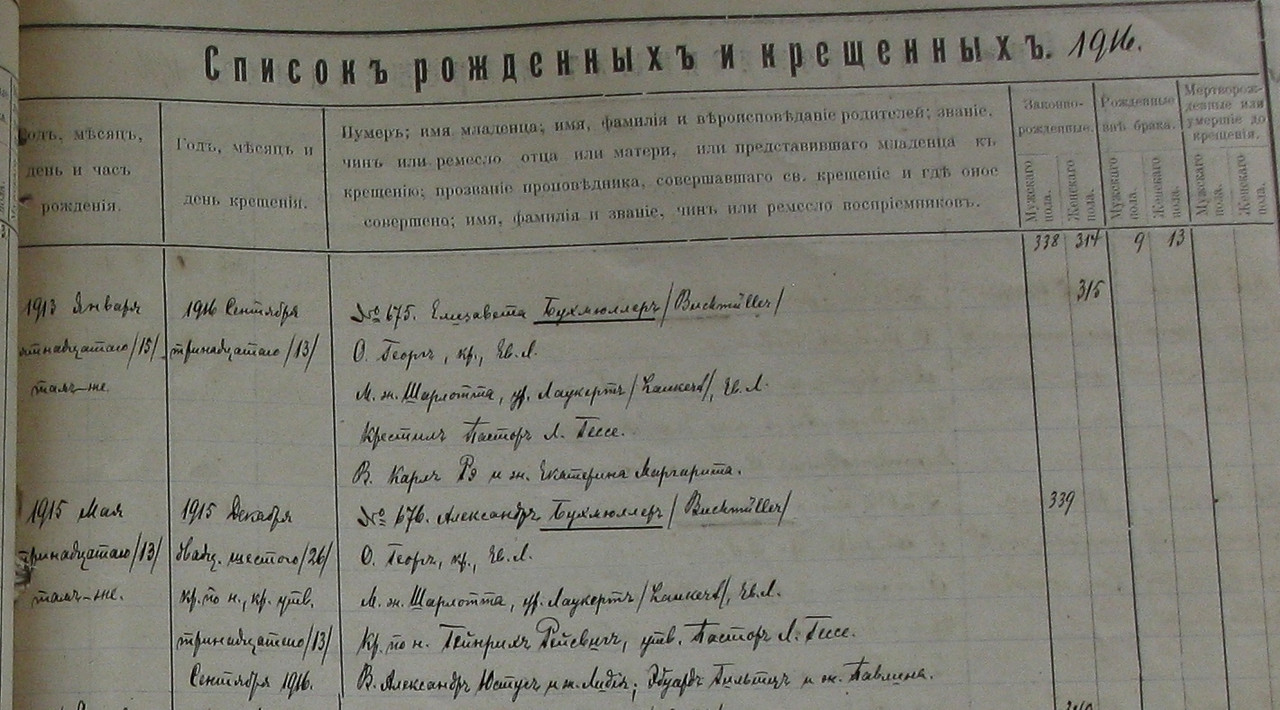 Списокъ рожденныхъ и крещенныхъ. 1916.
Годъ, мѣсяцъ,
день и часъ
рожденія.
Годъ, мѣсяцъ и
день крещенія.
Нумеръ; имя младенца; имя, фамилія и вѣроисповѣданіе родителей; званіе,
чинъ или ремесло отца или матери, или представившаго младенца къ
крещенію; прозваніе проповѣдника, совершавшаго св. крещеніе и гдѣ оное
совершено; имя, фамилія и званіе, чинъ или ремесло воспріемниковъ.
Законно-
рожденные.
Рожденные
внѣ брака.
Мертворож-
денные или
умершіе до
крещенія.
Мужскаго пола.
Женскаго пола.
Мужскаго пола.
Женскаго пола.
Мужскаго пола.
Женскаго пола.
338 314 9 13
315
1913 Января
пятнадцатаго /15/
тамъ-же.
1916 Сентября
тринадцатаго /13/
№ 675. Елизавета Бухмюллеръ /Buchmüller/
О. Георгъ, кр., Ев. Л.
М. ж. Шарлотта, ур. Лаукертъ /Laukert/, Ев. Л.
Крестилъ Пасторъ Л. Гессе.
В. Карлъ Рэ и ж. Екатерина Маргарита.
1915 Мая
тринадцатаго /13/
тамъ-же.
1915 Декабря
двадц. шестого /26/
кр. по н., кр. утв.
тринадцатаго /13/
Сентября 1916.
№ 676. Александръ Бухмюллеръ /Buchmüller/
339
О. Георгъ, кр., Ев. Л.
М. ж. Шарлотта, ур. Лаукертъ /Laukert/, Ев. Л.
Кр. по н. Гейнрихъ утв. Пасторъ Л. Гессе.
В. Александръ Юстусъ и ж. Лидія; Эдуардъ и ж. Павлина.